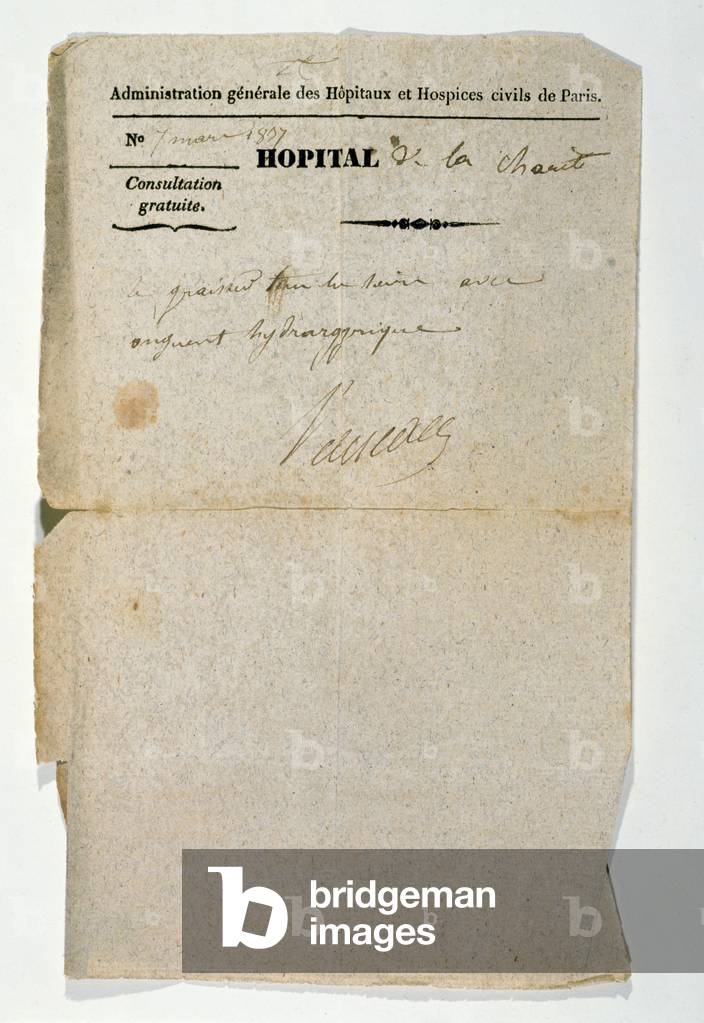 Administration générale des Hôpitaux et Hospices civils de Paris.
No 7 mars 1837
HOPITAL de la charité
Consultation
gratuite.
graisser avec
onguent hydrargyrique
bridgeman
images